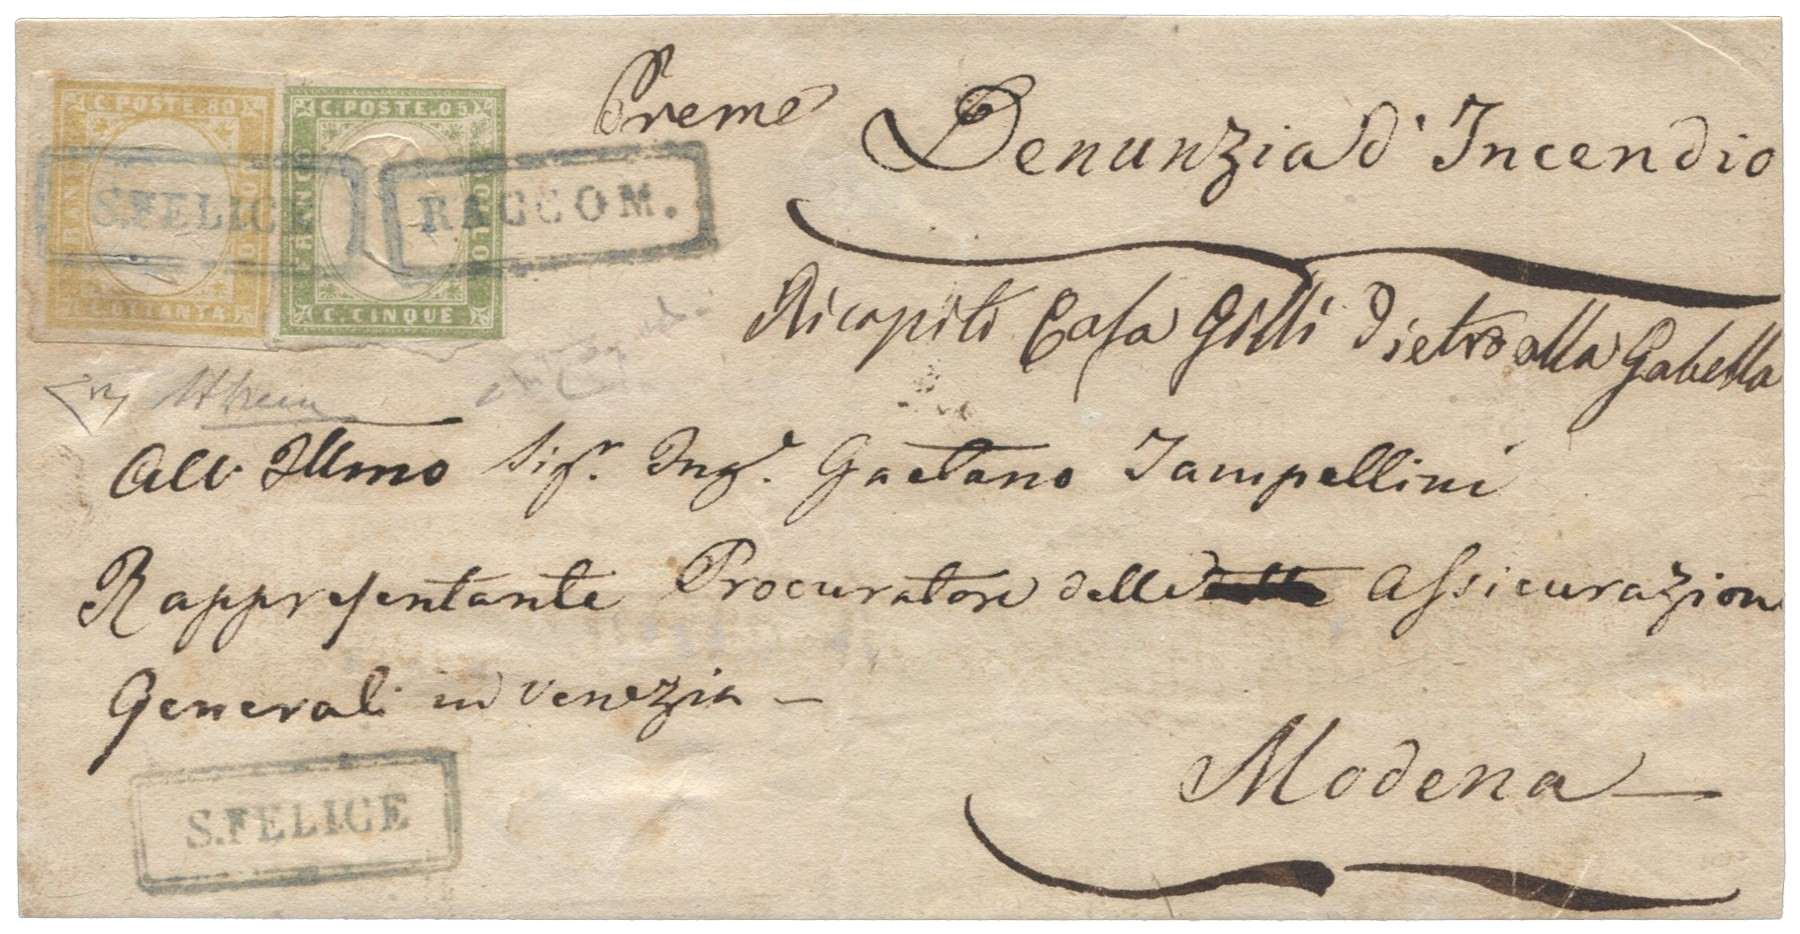 C. POSTE. 80
C. OTTANTA
C. POSTE. 05
FRANCO
BOLLO
C. CINQUE
S. FELICE
RACCOM.
Preme
Denunzia d'Incendio
Ricapiti Casa Gilli Pietro alla Gabella
All Illmo Sigr. Inge. Gaetano Jampellini
Rappresentante Procuratore delle Assicurazioni
Generali in Venezia –
Modena
S. FELICE